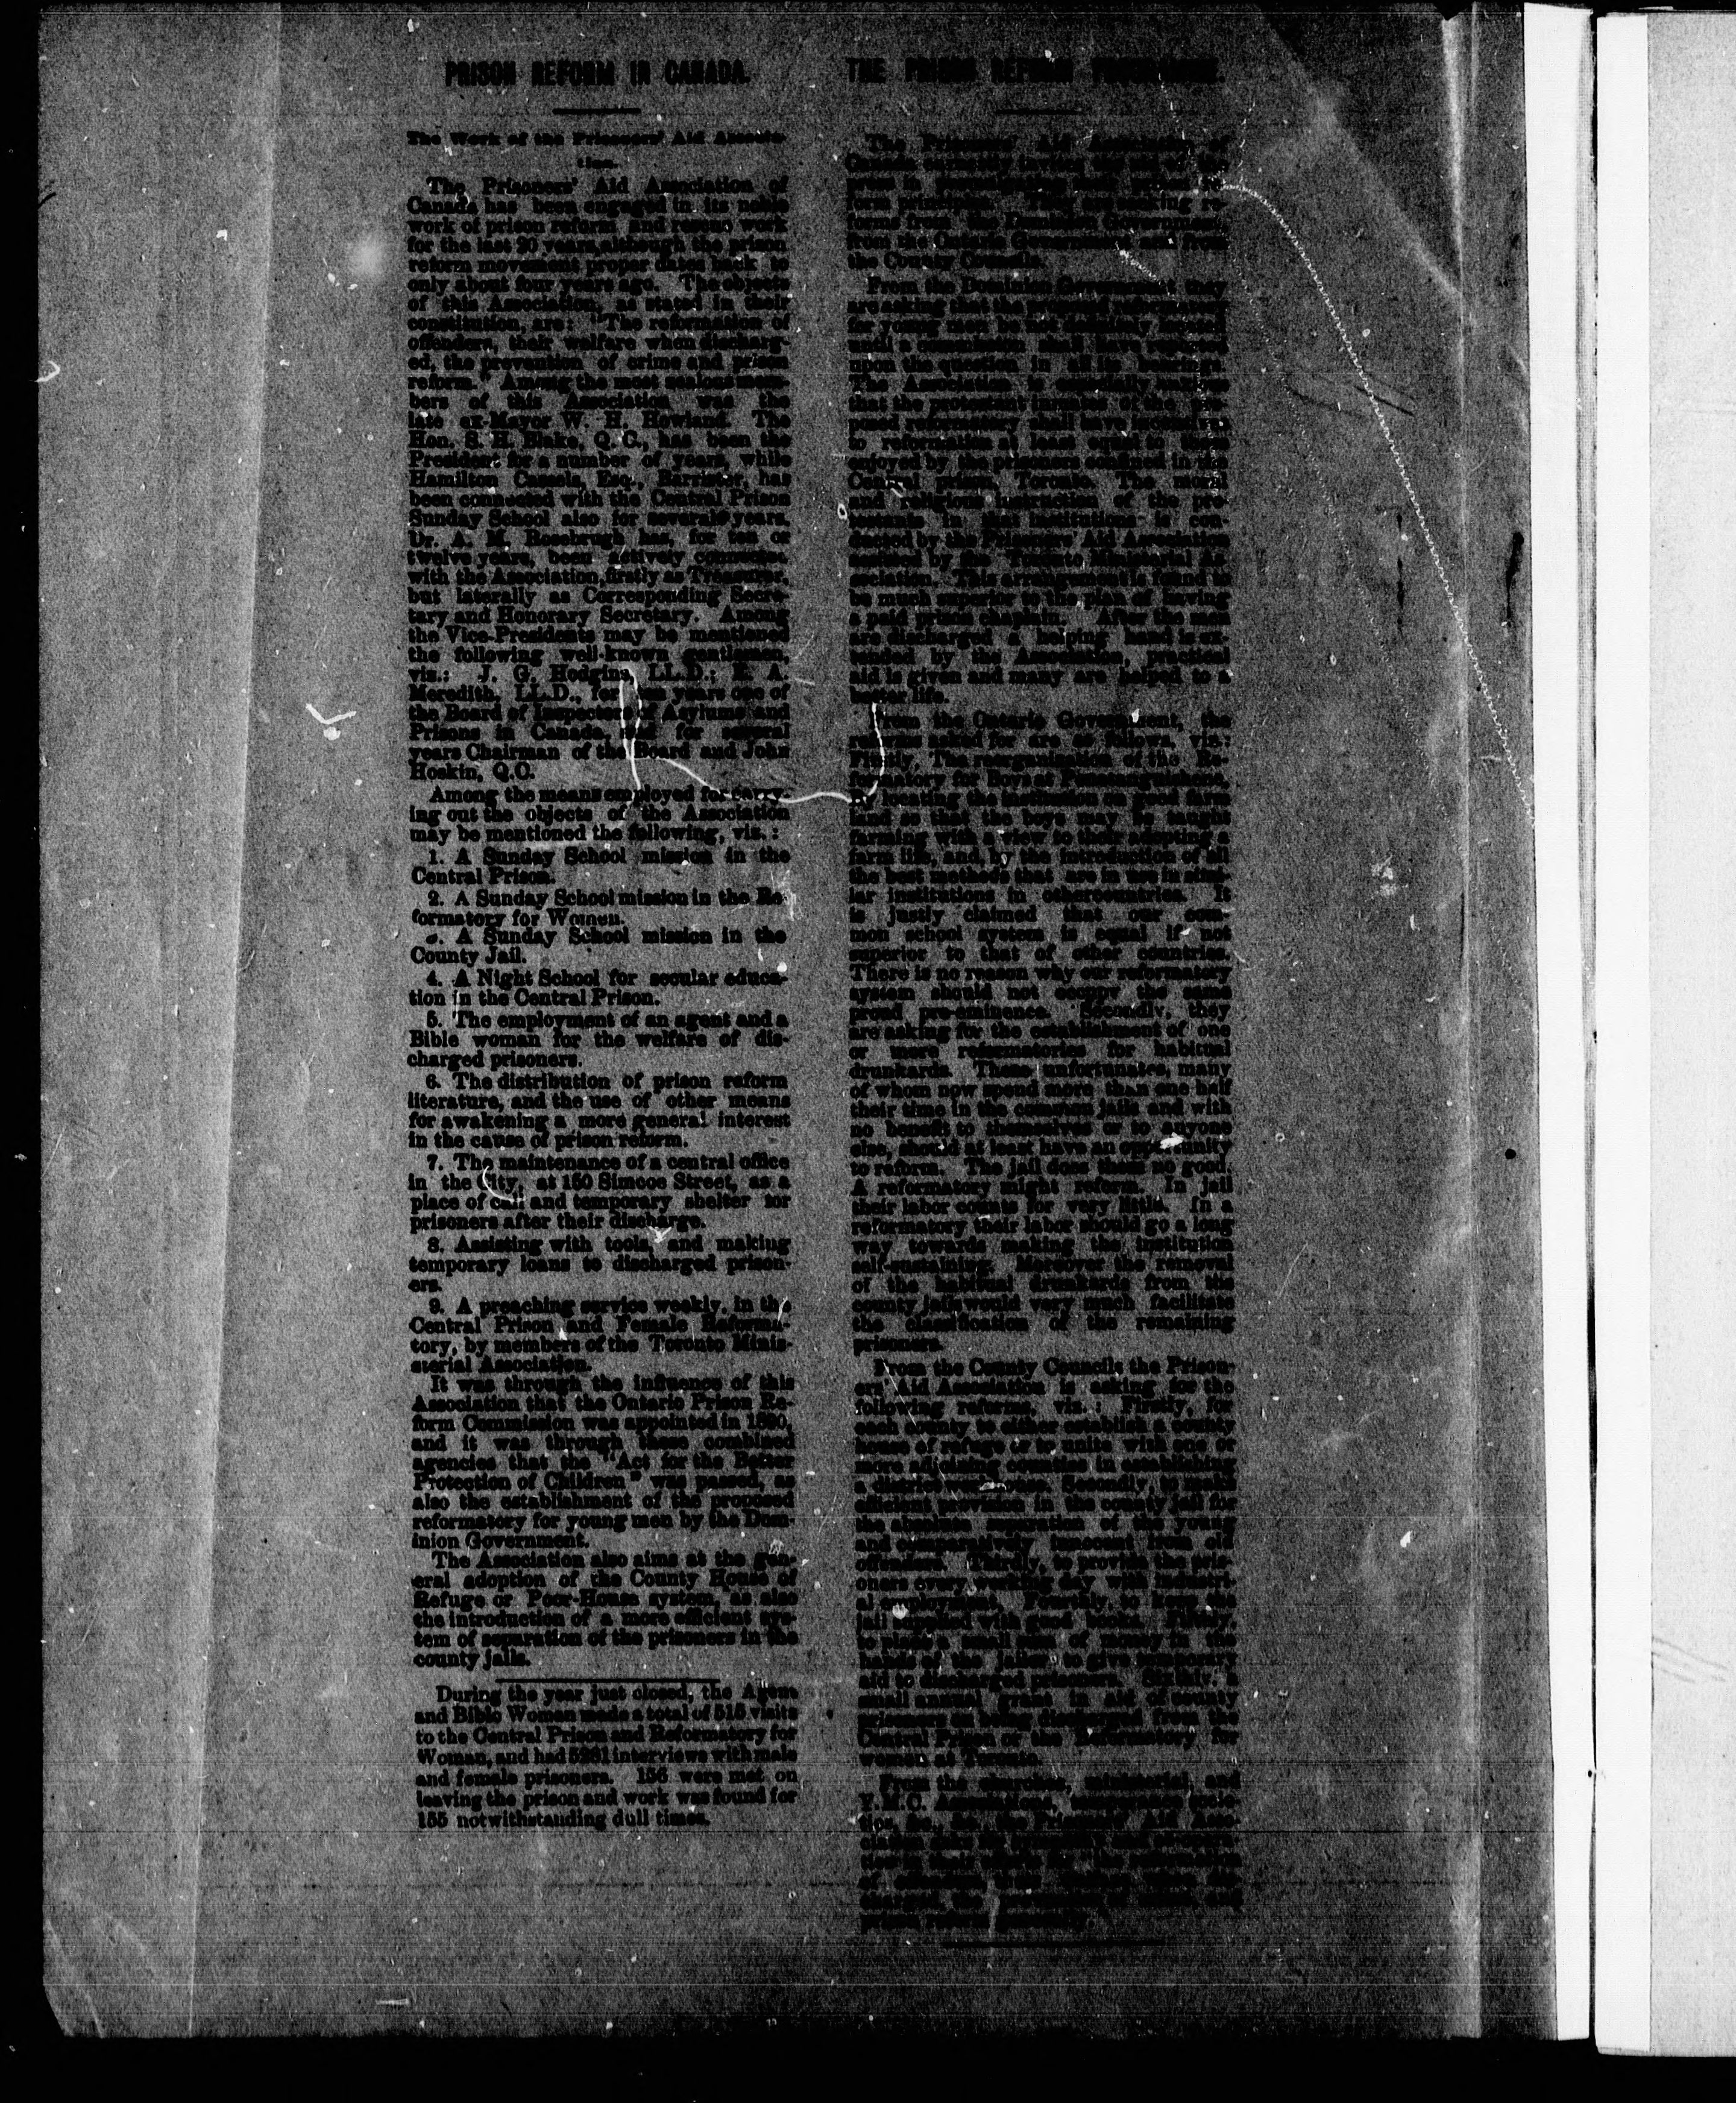 PRISON REFORM IN CANADA.
The Work of the Prisoners' Aid Associa-
tion.
The Prisoners' Aid Association of
Canada has been engaged in its noble
work of prison reform and rescue work
for the last 20 years, although the prison
reform movement proper dates back to
only about four years ago. The objects
of this Association, as stated in their
constitution, are: "The reformation of
offenders, their welfare when discharg-
ed, the prevention of crime and prison
reform." Among the most zealous mem-
bers of this Association was the
late ex-Mayor W. H. Howland. The
Hon. S. H. Blake, Q. C., has been the
President for a number of years, while
Hamilton Cassels, Esq., Barrister, has
been connected with the Central Prison
Sunday School also for several years.
Dr. A. M. Rosebrugh has, for ten or
twelve years, been actively connected
with the Association, firstly as Treasurer,
but laterally as Corresponding Secre-
tary and Honorary Secretary. Among
the Vice-Presidents may be mentioned
the following well-known gentlemen,
viz.: J. G. Hodgins, LL.D.; E. A.
Meredith, LL.D., for ten years one of
the Board of Inspectors of Asylums and
Prisons in Canada, and for several
years Chairman of the Board and John
Hoskin, Q.C.
Among the means employed for carry-
ing out the objects of the Association
may be mentioned the following, viz.:
1. A Sunday School mission in the
Central Prison.
2. A Sunday School mission in the Re-
formatory for Women.
3. A Sunday School mission in the
County Jail.
4. A Night School for secular educa-
tion in the Central Prison.
5. The employment of an agent and a
Bible woman for the welfare of dis-
charged prisoners.
6. The distribution of prison reform
literature, and the use of other means
for awakening a more general interest
in the cause of prison reform.
7. The maintenance of a central office
in the City, at 150 Simcoe Street, as a
place of call and temporary shelter for
prisoners after their discharge.
8. Assisting with tools and making
temporary loans to discharged prison-
ers.
9. A preaching service weekly, in the
Central Prison and Female Reforma-
tory, by members of the Toronto Minis-
sterial Association.
It was through the influence of this
Association that the Ontario Prison Re-
form Commission was appointed in 1890,
and it was through these combined
agencies that the "Act for the Better
Protection of Children" was passed, as
also the establishment of the proposed
reformatory for young men by the Dom-
inion Government.
The Association also aims at the gen-
eral adoption of the County House of
Refuge or Poor-House system, as also
the introduction of a more efficient sys-
tem of separation of the prisoners in the
county jails.
During the year just closed, the Agent
and Bible Woman made a total of 515 visits
to the Central Prison and Reformatory for
Woman, and had 5281 interviews with male
and female prisoners. 156 were met on
leaving the prison and work was found for
155 notwithstanding dull times.
THE PRISON REFORM PROGRAMME.
The Prisoners' Aid Association of
form principles. They are asking re-
forms from the Dominion Government
from the Ontario Government, and from
the County Councils.
From the Dominion Government they
are asking that the proposed reformatory
for young men be not definitely located
until a commission shall have reported
upon the question in all its bearings.
The Association is especially anxious
that the protestant inmates of the pro-
posed reformatory shall have incentives
to reformation at least equal to those
enjoyed by the prisoners confined in the
Central prison, Toronto. The moral
and religious instruction of the pro-
testants in that institution is con-
ducted by the Prisoners' Aid Association
assisted by the Toronto Ministerial As-
sociation. This arrangement is found to
be much superior to the plan of having
a paid prison chaplain. After the men
are discharged a helping hand is ex-
tended by the Association, practical
aid is given and many are helped to a
better life.
From the Ontario Government, the
reforms asked for are as follows, viz.:
Firstly, The reorganization of the Re-
formatory for Boys at Penetanguishene,
by locating the institution on good farm
land so that the boys may be taught
farming with a view to their adopting a
farm life, and by the introduction of all
the best methods that are in use in simi-
lar institutions in other countries. It
is justly claimed that our com-
mon school system is equal if not
superior to that of other countries.
There is no reason why our reformatory
system should not occupy the same
proud pre-eminence. Secondly, they
are asking for the establishment of one
or more reformatories for habitual
drunkards. These unfortunates, many
of whom now spend more than one half
their time in the common jails and with
no benefit to themselves or to anyone
else, should at least have an opportunity
to reform. The jail does them no good.
A reformatory might reform. In jail
their labor counts for very little. In a
reformatory their labor should go a long
way towards making the institution
self-sustaining. Moreover the removal
of the habitual drunkards from the
county jails would very much facilitate
the classification of the remaining
prisoners.
From the County Councils the Prison-
ers' Aid Association is asking for the
following reforms, viz.: Firstly, for
each county to either establish a county
house of refuge or to unite with one or
more adjoining counties in establishing
a district poor-house. Secondly, to make
efficient provision in the county jail for
the absolute separation of the young
and comparatively innocent from old
offenders. Thirdly, to provide the pris-
oners every working day with industri-
al employment. Fourthly, to keep the
jail supplied with good books. Fifthly,
to place a small sum of money in the
hands of the jailer to give temporary
aid to discharged prisoners. Sixthly, a
small annual grant in aid of county
prisoners when discharged from the
Central Prison or the Reformatory for
women at Toronto.
From the churches, ministerial, and
Y.M.C. Associations,
the Prisoners' Aid Asso-